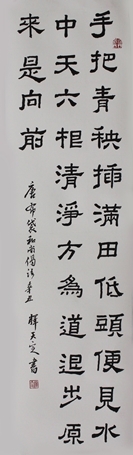 手把青秧插满田低頭便見水
中天六根清淨方為道退步原
來是向前
唐布袋和尚偈語辛丑 释天定書